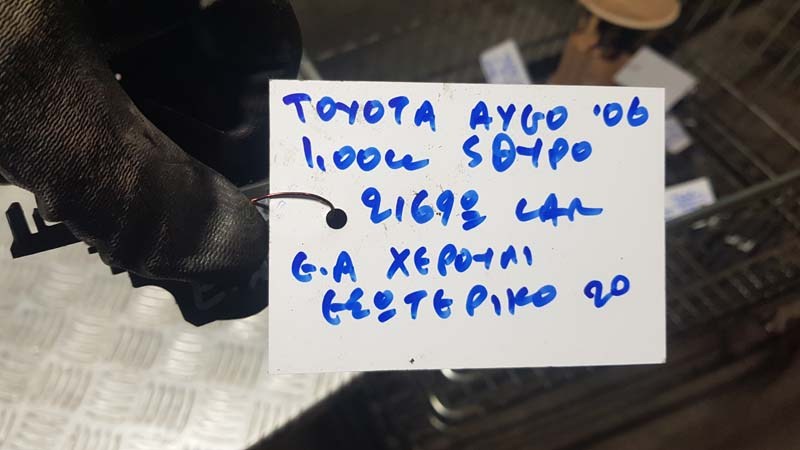 TOYOTA AYGO '06
1,00cc 5ΘΥΡΟ
2169º CAR
Ε.Α ΧΕΡΟΥΛΙ
ΕΣΩΤΕΡΙΚΟ 20